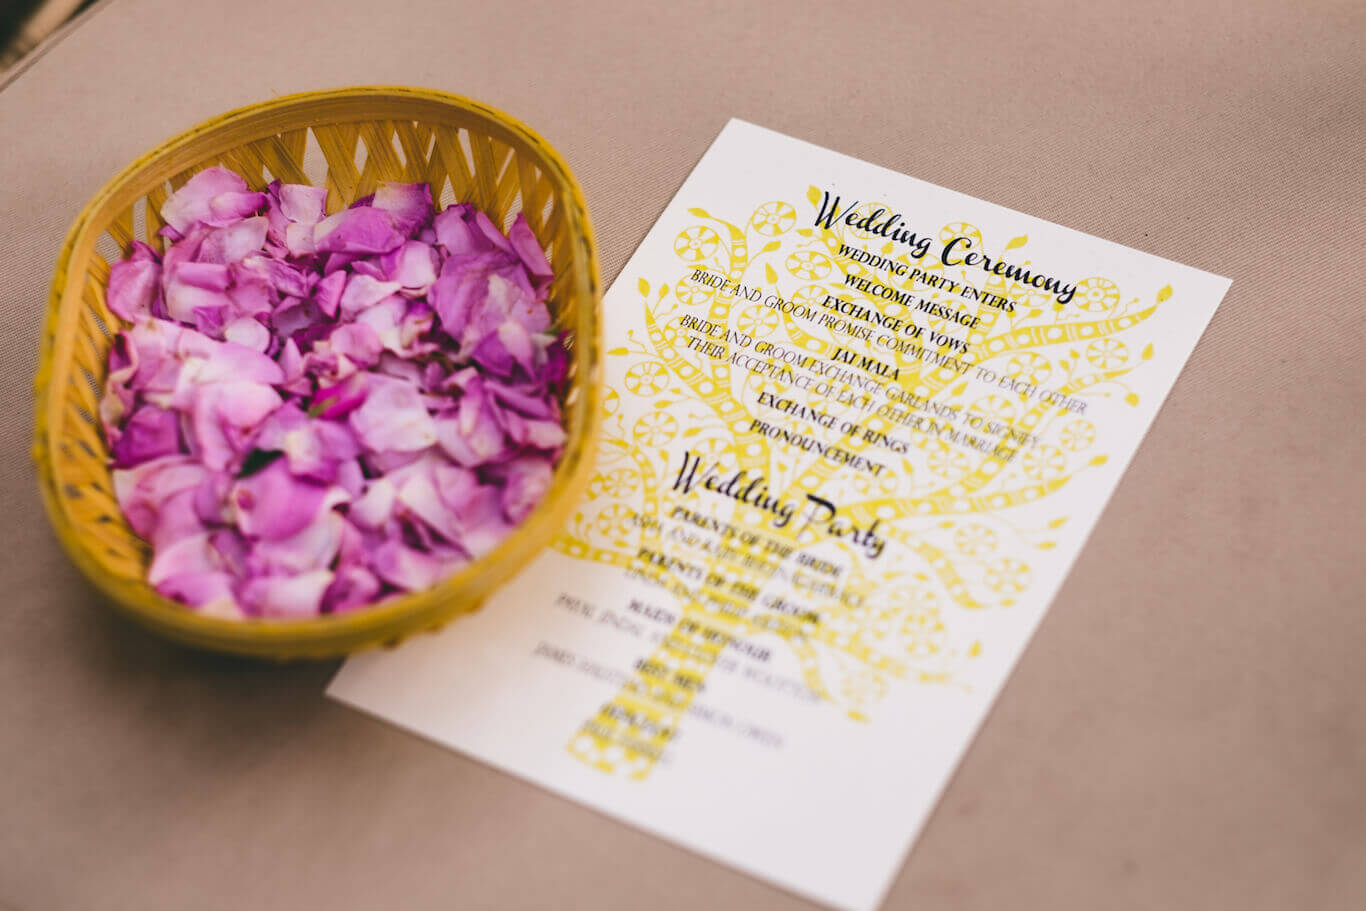 Wedding Ceremony
WEDDING PARTY ENTERS
WELCOME MESSAGE
EXCHANGE OF VOWS
BRIDE AND GROOM PROMISE COMMITMENT TO EACH OTHER
JAI MALA
BRIDE AND GROOM EXCHANGE GARLANDS TO SIGNIFY
THEIR ACCEPTANCE OF EACH OTHER IN MARRIAGE
EXCHANGE OF RINGS
PRONOUNCEMENT
Wedding Party
PARENTS OF THE BRIDE
PARENTS OF THE GROOM
MAIDS OF HONOUR
BEST MEN